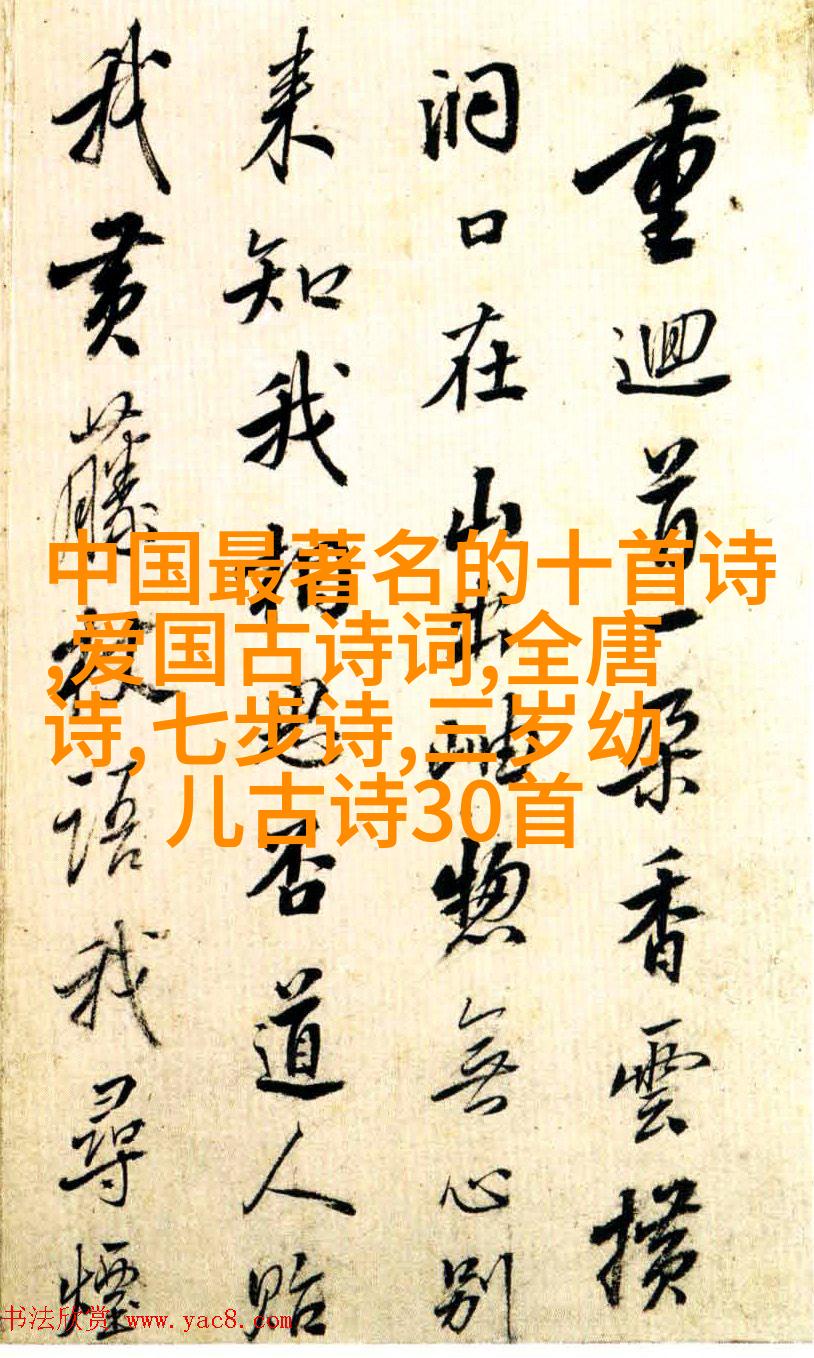 重迴首一朵香雲横
洞口在山出岫惣無心别
来知我相思否道人貽
我黄藤杖語我尋煙
中国最著名的十首诗
,爱国古诗词,全唐
诗,七步诗,三岁幼
儿古诗30首
书法欣赏 www.yac8.com